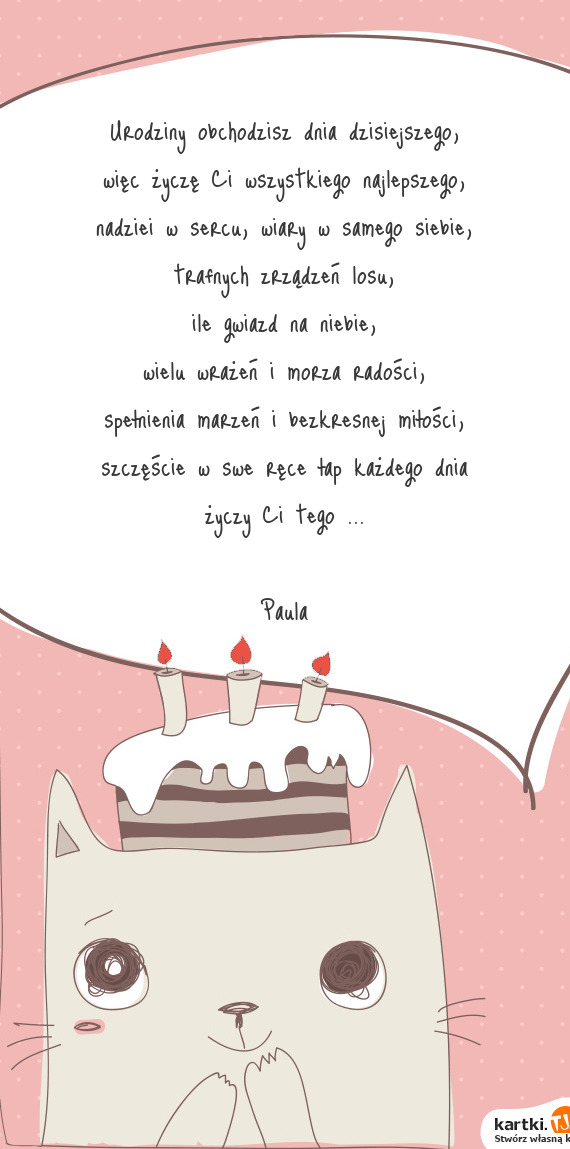 Urodziny obchodzisz dnia dzisiejszego,
więc życzę Ci wszystkiego najlepszego,
nadziei w sercu, wiary w samego siebie,
trafnych zrządzeń losu,
ile gwiazd na niebie,
wielu wrażeń i morza radości,
spełnienia marzeń i bezkresnej miłości,
szczęście w swe ręce łap każdego dnia
życzy Ci tego ...
Paula
kartki.TJ
Stwórz własną k